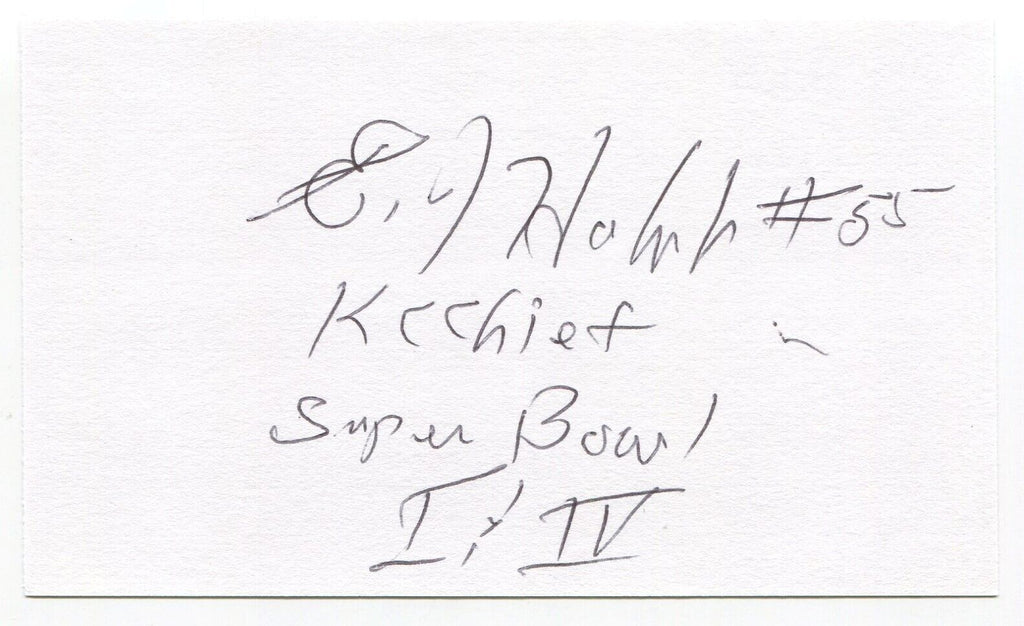 E.J. Holub #55
KC Chief in
Super Bowl
I & IV